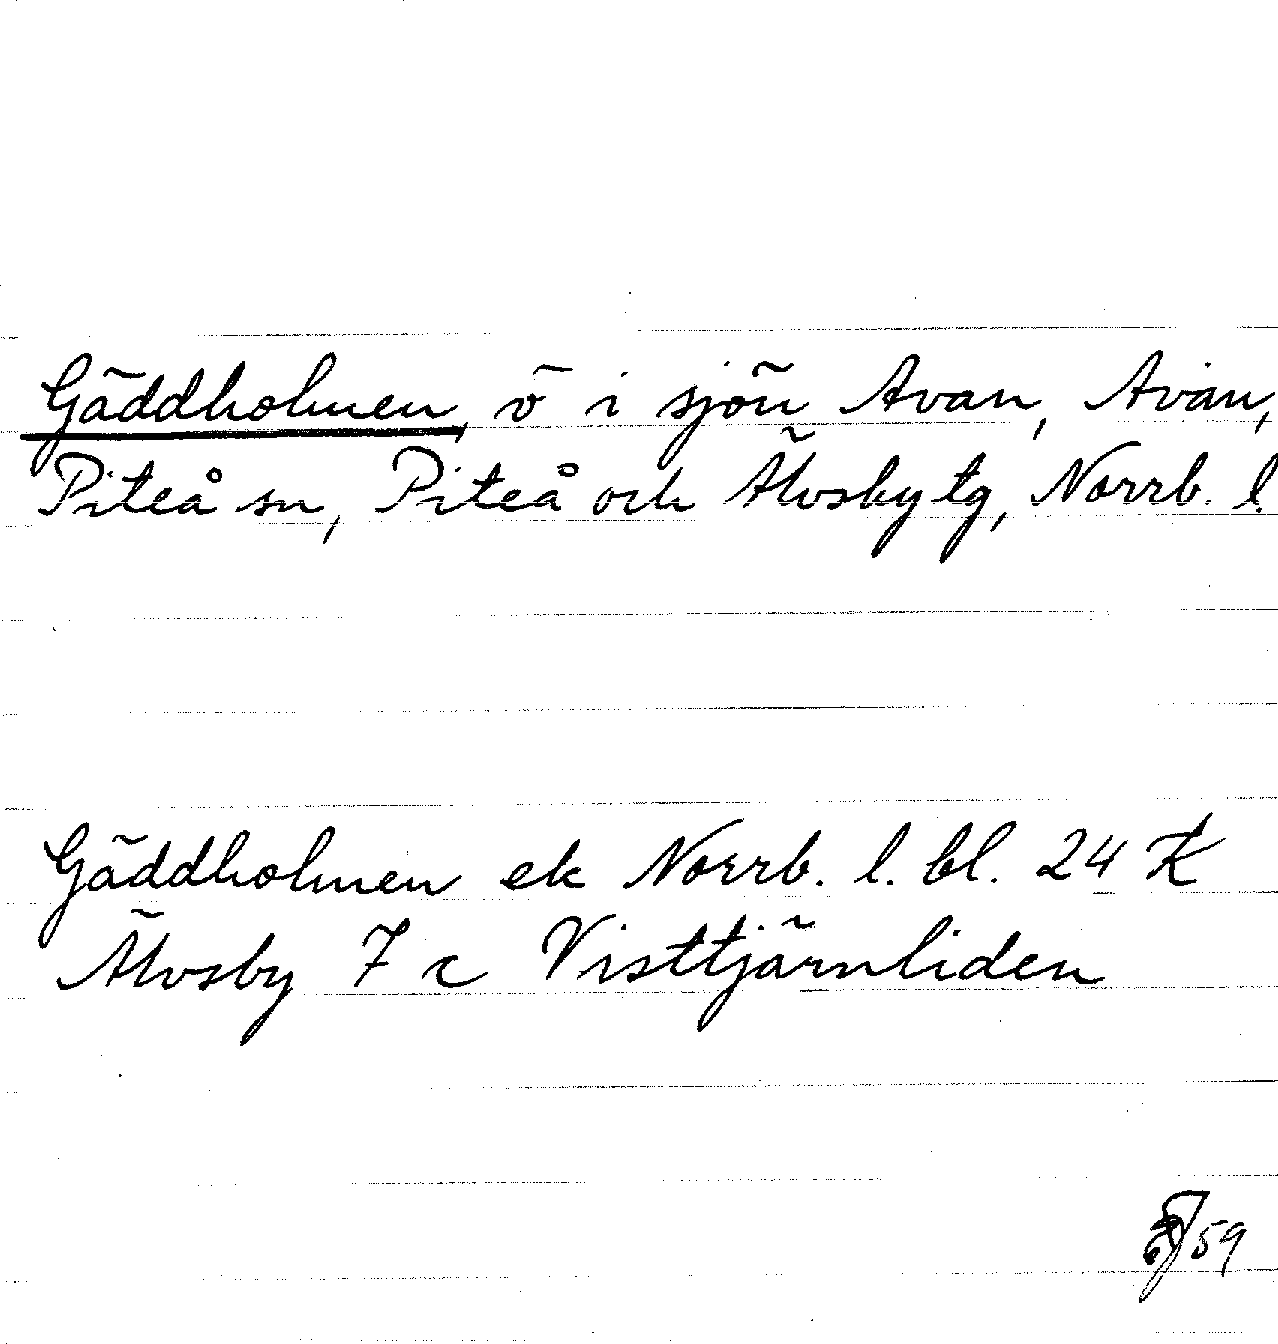 Gäddholmen, ö i sjön Avan, Avan,
Piteå sn, Piteå och Älvsby tg, Norrb. l.
Gäddholmen ek Norrb. l. bl. 24 K
Älvsby 7 c Visttjärnliden
59